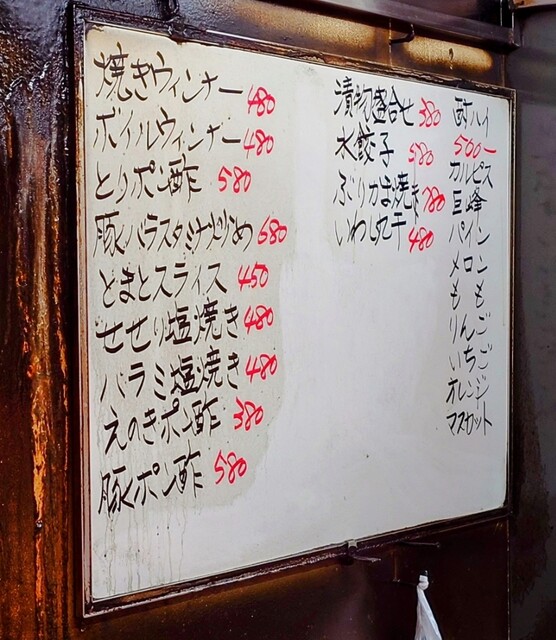 焼きウィンナー 480
ボイルウィンナー 480
とりポン酢 580
豚バラスタミナ炒め 680
とまとスライス 450
せせり塩焼き 480
ハラミ塩焼き 480
えのきポン酢 380
豚ポン酢 580
漬物盛合せ 380
水餃子 580
ぶりかま焼き 780
いわし丸干 480
酎ハイ
500ー
カルピス
巨峰
パイン
メロン
もも
りんご
いちご
オレンジ
マスカット